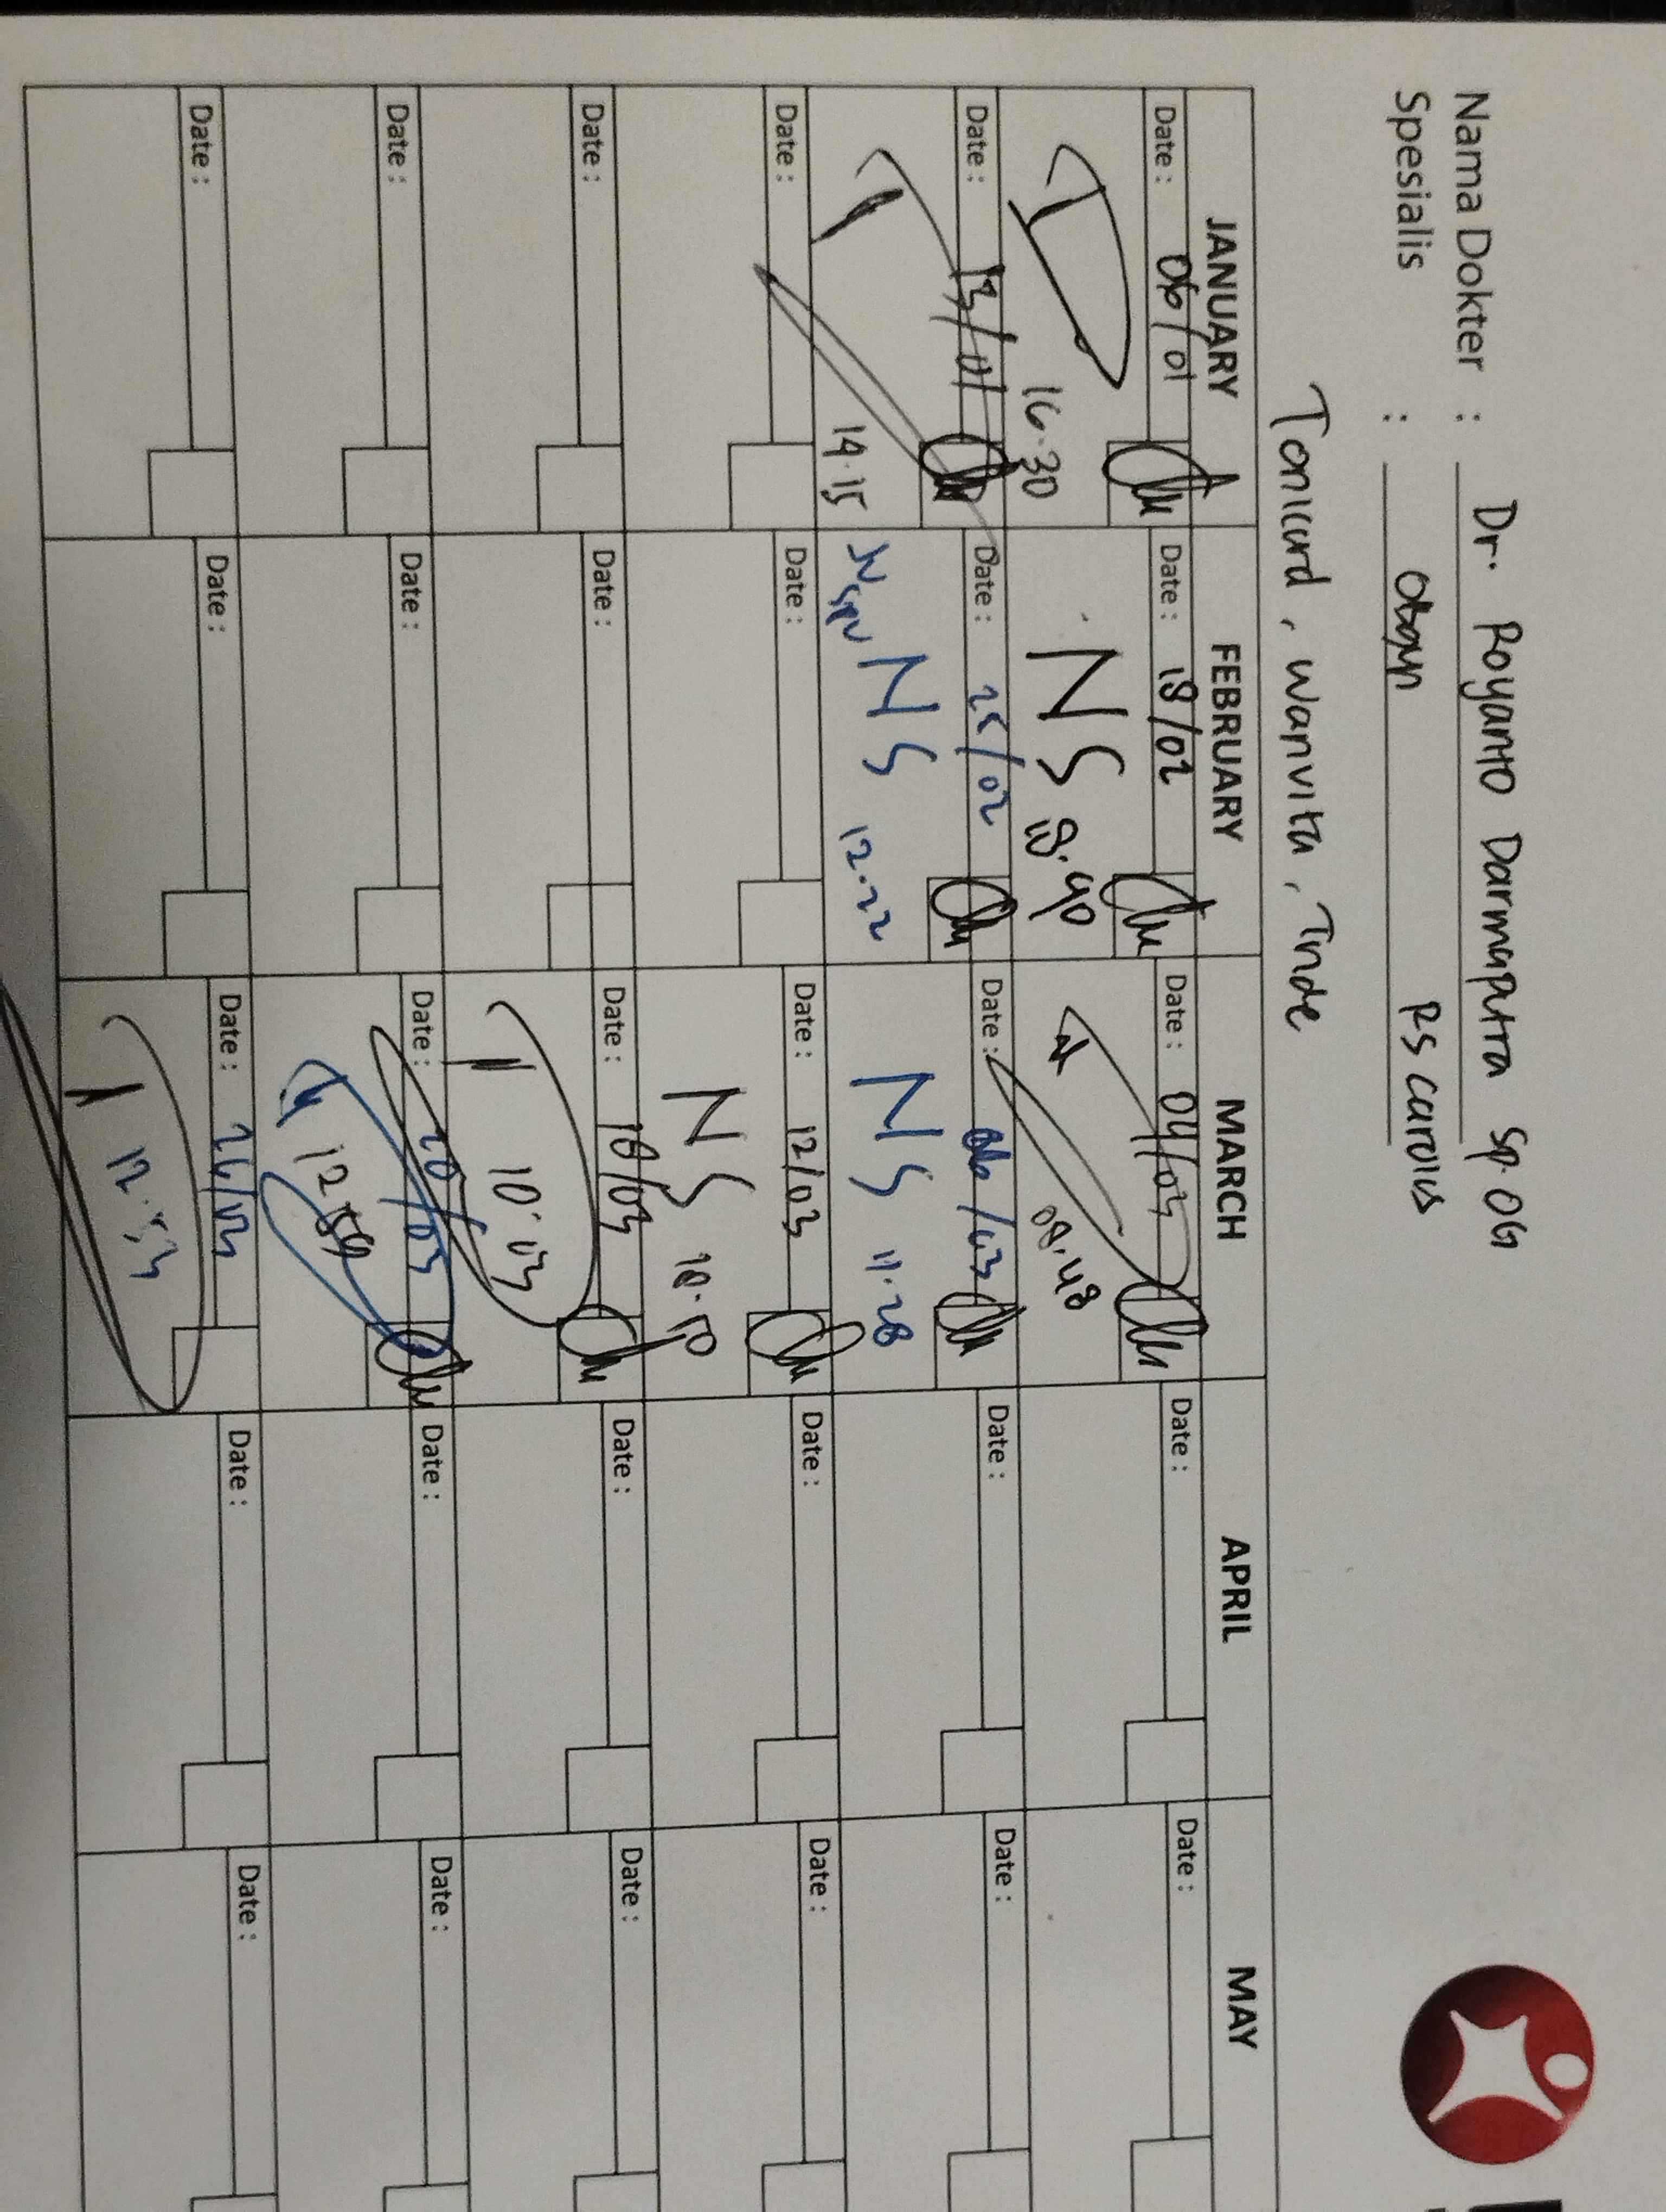 Nama Dokter : Dr. Royanto Darmaputra Sp.OG
Spesialis : Obgyn RS Carolus
Tonicard, Wanvita, Tnde
JANUARY FEBRUARY MARCH APRIL MAY
Date : 06/01 Date : 18/02 Date : 04/03 Date : Date :
16.30 NS 18.40 09.48
Date : 13/01 Date : 25/02 Date : 06/03 Date : Date :
14.15 SPV NS 12.22 NS 11.28
Date : Date : Date : 12/03 Date : Date :
NS 10.50
Date : Date : Date : 18/03 Date : Date :
10.03
Date : Date : Date : 20/03 Date : Date :
12.59
Date : Date : Date : 26/03 Date : Date :
12.53